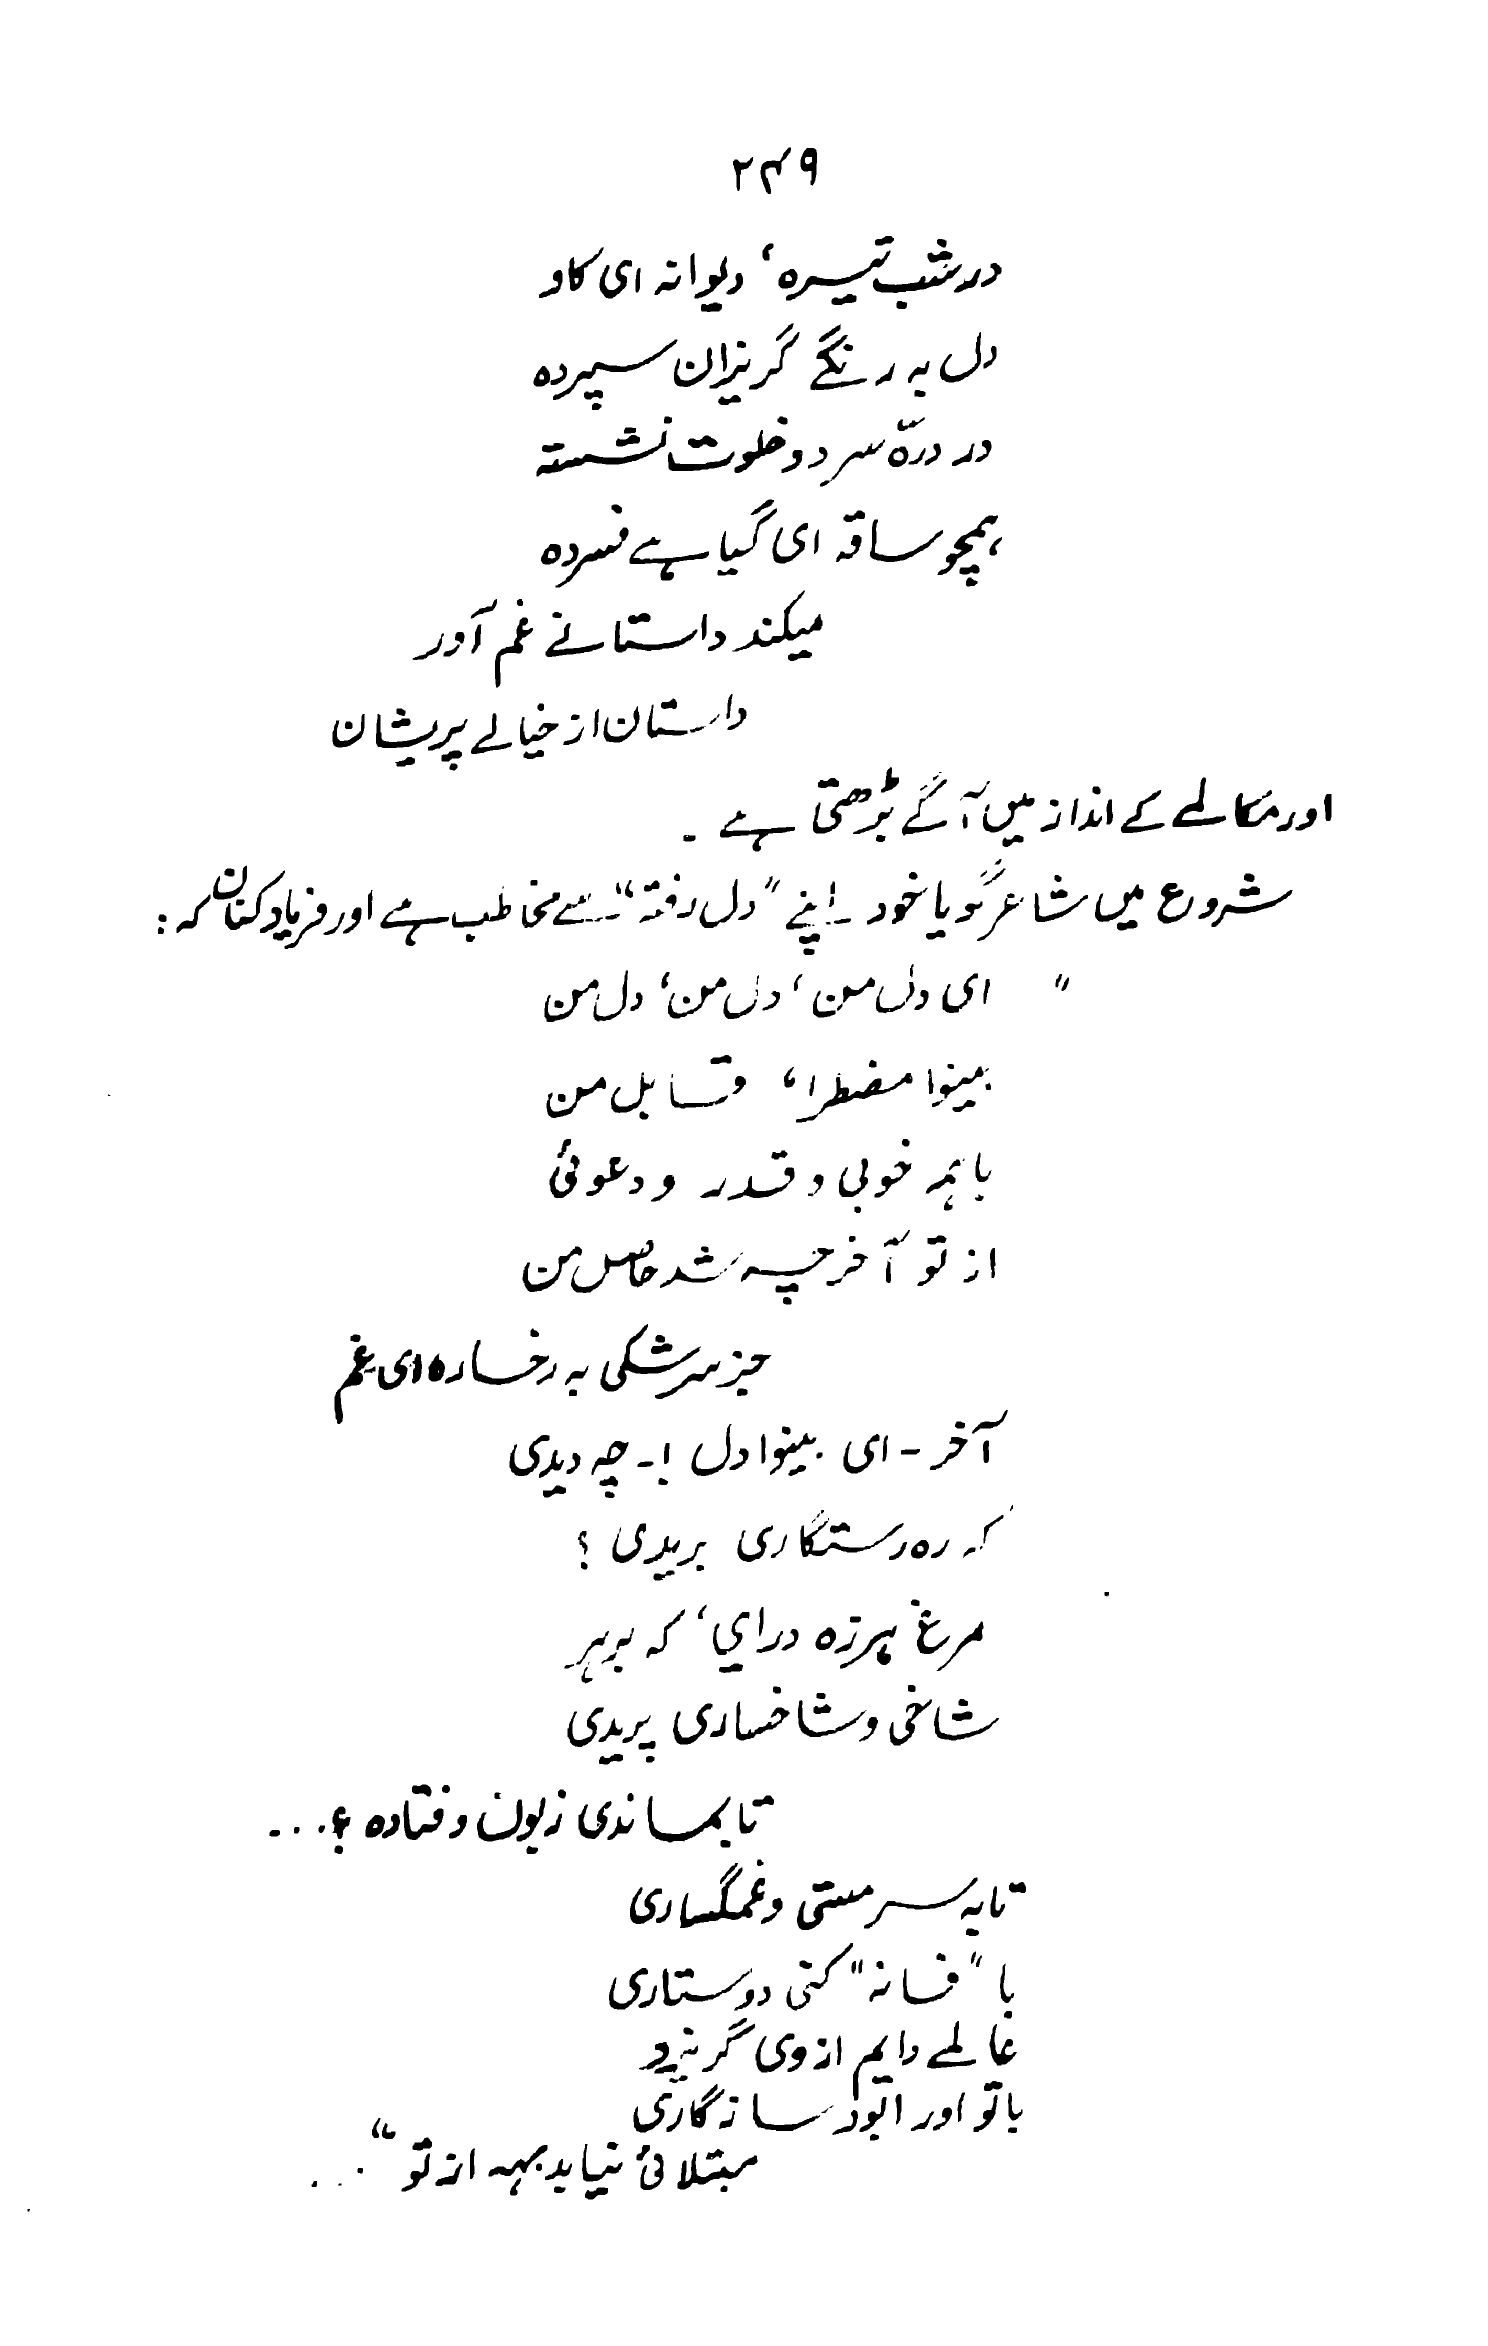 ۲۴۹
در شب تیره، دیوانہ ای کاو
دل بہ رنگے گریزان سپردہ
در درّہ سرد و خلوت نشستہ
ہمچو ساقہ ای گیاہے فسردہ
میکند داستانے غم آور
داستان از خیالے پریشان
اور مکالمے کے انداز میں آگے بڑھتی ہے ۔
شروع میں شاعر گویا خود اپنے "دل رفتہ" سے مخاطب ہے اور فریاد کناں کہ :
" ای دل من، دل من، دل من
بینوا مضطرا، قابل من
با ہمہ خوبی و قدر و دعوئی
از تو آخر چہ شد حاصل من
جز سرشکی بہ رخسارہ ای غم
آخر - ای بینوا دل ! - چہ دیدی
کہ رہ رستگاری بریدی ؟
مرغ ہرزہ درایی، کہ بر ہر
شاخی و شاخساری پریدی
تا بماندی زبون و فتادہ ؟...
تا بہ سر مستی و غمگساری
با "فسانہ" کنی دوستاری
عالمے دایم از وی گریزد
با تو او را بود سازگاری
مبتلائی نیابد بہہ از تو" ...